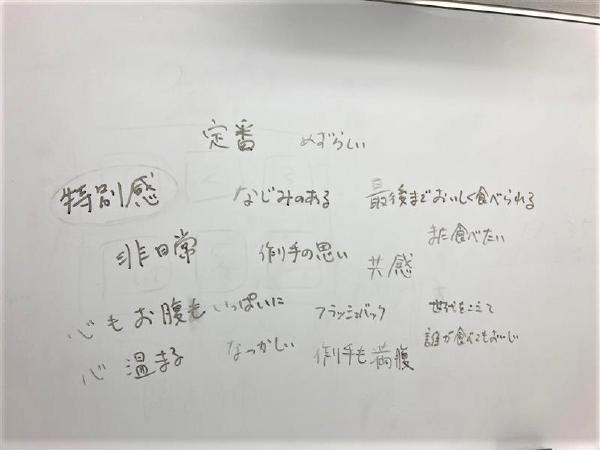 定番 めずらしい
特別感 なじみのある 最後までおいしく食べられる
非日常 作り手の思い 共感 また食べたい
心もお腹もいっぱいに フラッシュバック 世代をこえて
心温まる なつかしい 作り手も満腹 誰が食べてもおいしい